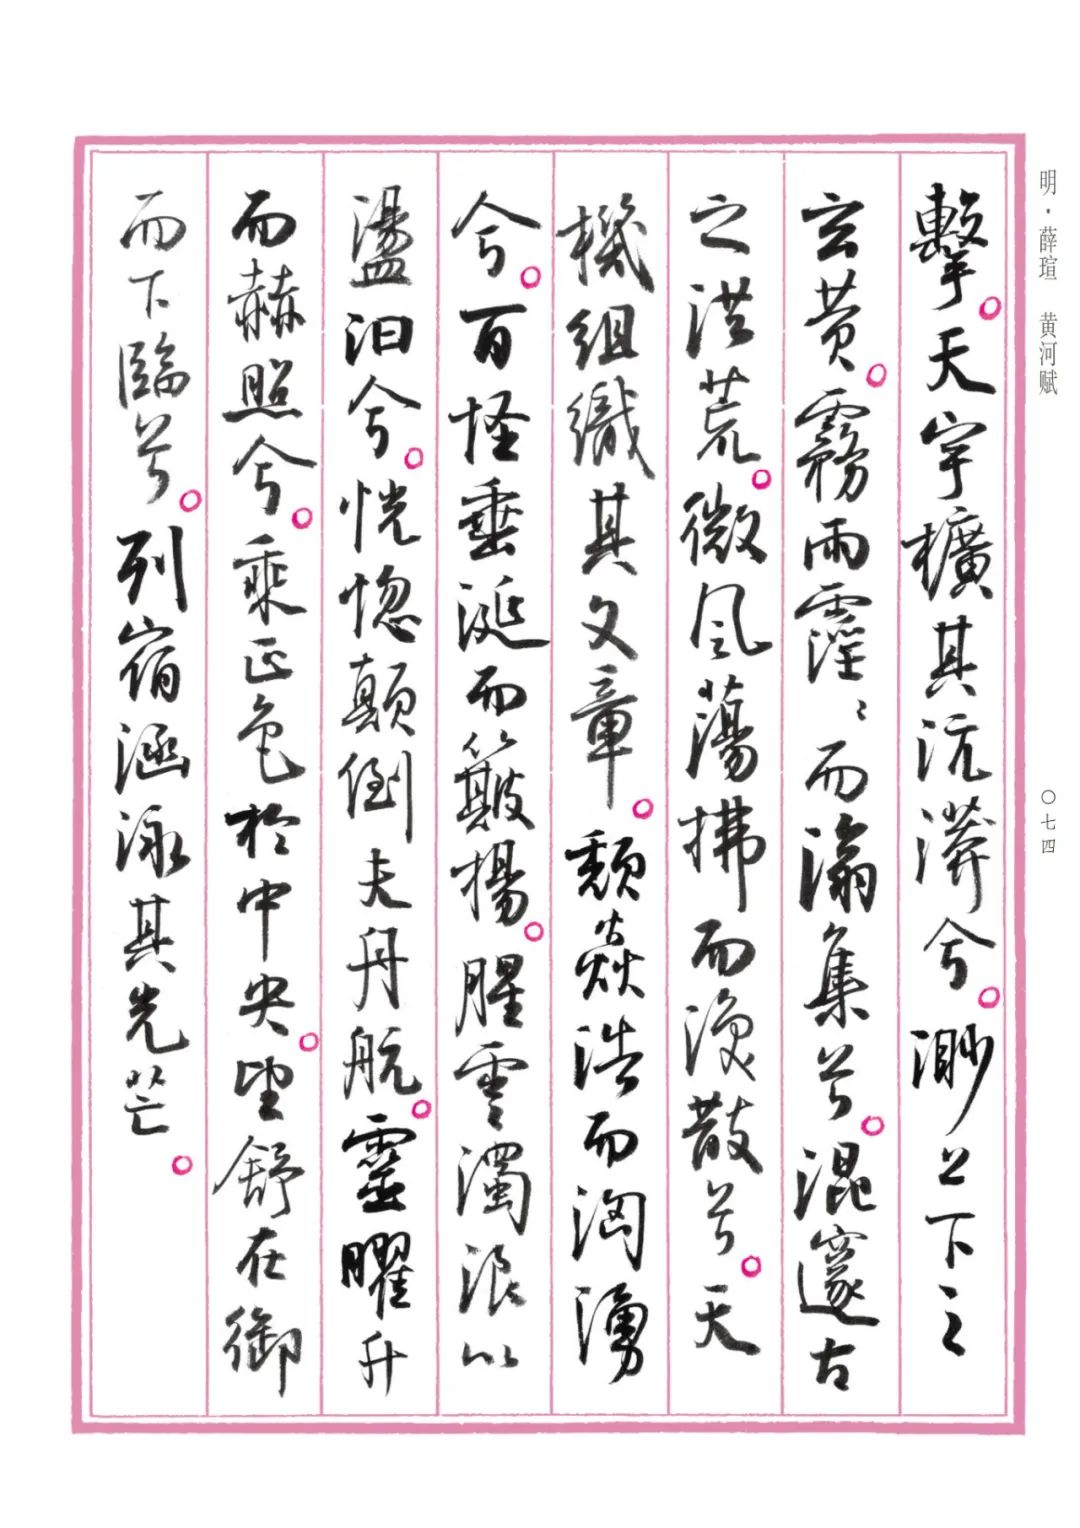 明·薛瑄 黄河赋
〇七四
擊。天宇擴其沆漭兮。渺上下之
玄黄。霧雨霪〻而滃集兮。混邃古
之洪荒。微風蕩拂而渙散兮。天
機組織其文章。頹焱浩而洶湧
兮。百怪垂涎而簸揚。腥雲濁浪以
盪汩兮。恍惚顛倒夫舟航。靈曜升
而赫照兮。乘正色於中央。望舒在御
而下臨兮。列宿涵泳其光芒。